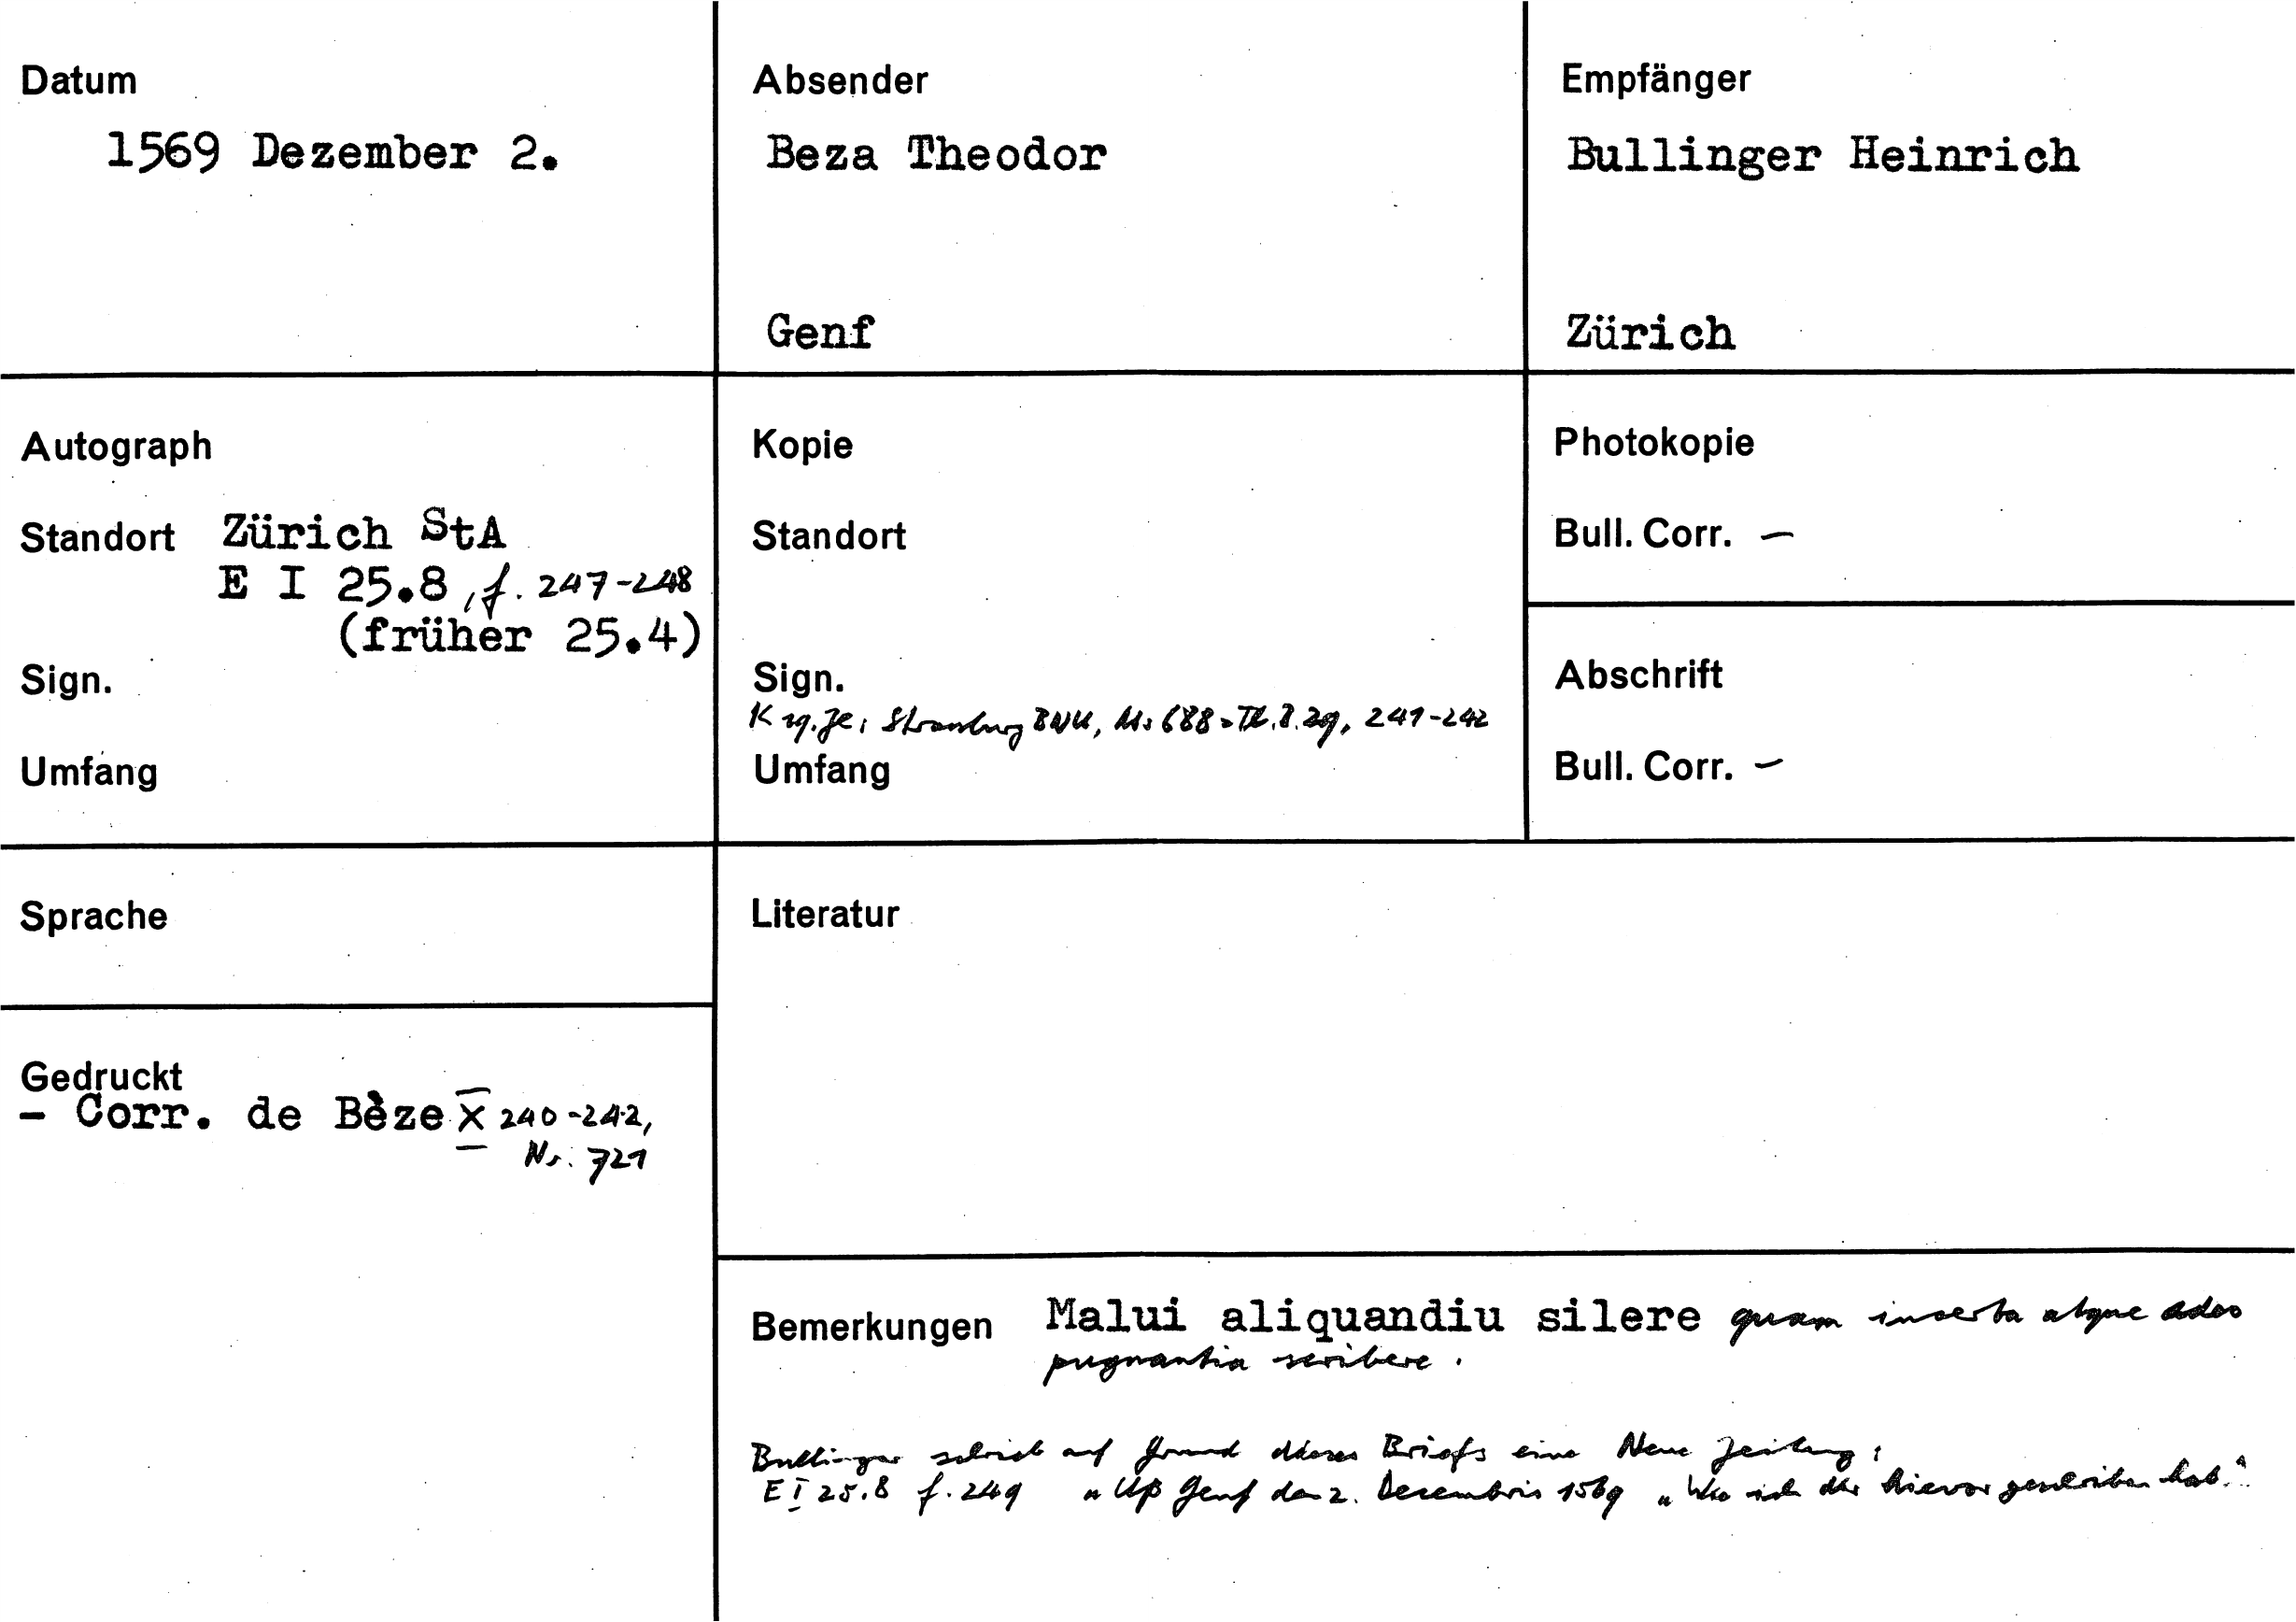 Datum
1569 Dezember 2.
Absender
Beza Theodor
Genf
Empfänger
Bullinger Heinrich
Zürich
Autograph
Standort Zürich StA
E I 25.8, f. 247-248
(früher 25.4)
Sign.
Umfang
Kopie
Standort
Sign.
Strassburg BNU, Ms 688 = 241-242
Umfang
Photokopie
Bull. Corr. –
Abschrift
Bull. Corr. –
Sprache
Gedruckt
- Corr. de Bèze X 240-242,
Nr. 721
Literatur
Bemerkungen Malui aliquandiu silere quam incerta atque adeo
pugnantia scribere.
Bullinger schrieb auf Grund dieses Briefs eine Neue Zeitung:
E I 25.8 f. 249 "Uß Genf den 2. Decembris 1569 "Wie ich hievor geschriben hab."